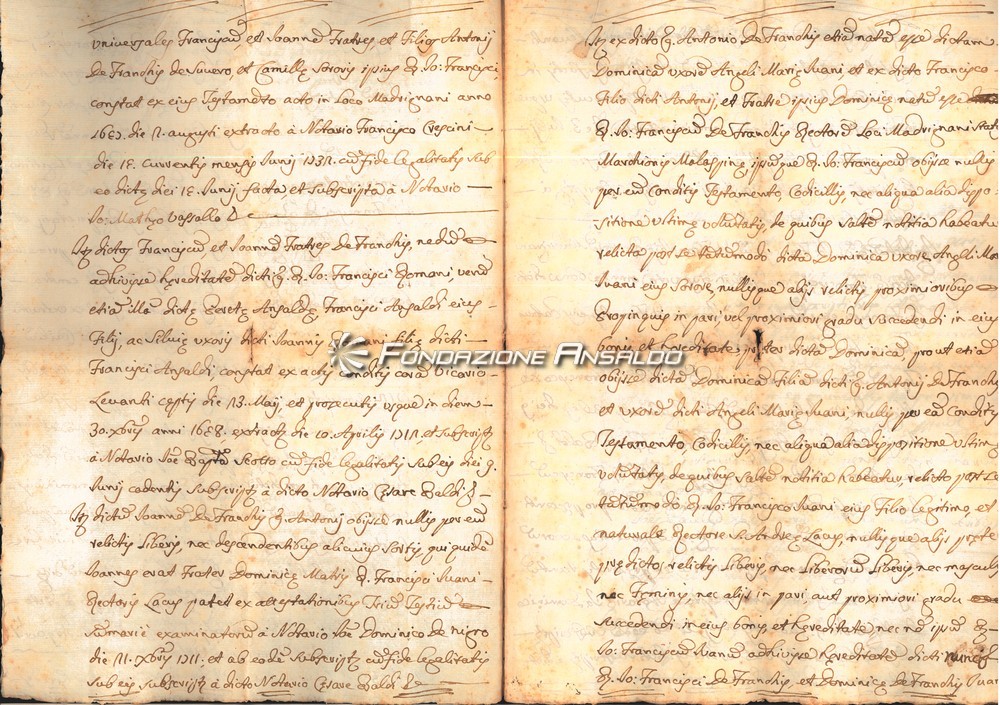 universales Franciscu et Ioanne Fratres, et Filios Antonij
De Franchis de Suvero, et Camille Sororis ipsius q. Io: Francisci,
constat ex eius Testamento acto in Loco Madrignani anno
die augusti extracto à Notario Francisco Crescini
die 18. Currentis mensis Junij cu fide legalitatis sub
eo dicte diei 18. Junij facta et subscripta à Notario
Io: Mattheo Vassallo
Itz dictos Franciscu et Ioanne Fratres De Franchis, nedu
adhivisse hereditate dicti q. Io: Francisci Romani, veru
etia Illa dicte Ansalde, Francisci Ansaldi eius
Filij, ac Silvie uxoris dicti Ioannis filie dicti
Francisci Ansaldi constat ex actis conditis cora Vicario
Levanti ceptis die 13. Maij, et prosecutis usque in diem
30. xbris anni extractis die 10. Aprilis et subscriptis
à Notario Scotto cu fide legalitatis sub eis diei 9.
Junij cadentis subscriptis à dicto Notario Cesare Baldi
Itz dictu Ioanne De Franchis q. Antonij obijsse nullis per eu
relictis liberis, nec descendentibus alicuius sortis, qui quide
Ioannes erat Frater Dominice Matris q. Francisci Ivani
Rectoris Lacus patet ex attestationibus Triu Testiu
examinatoru à Notario Dominico de Nigro
die 11. xbris 1711. et ab eode subscriptis cu fide legalitatis
sub eis subscriptis à dicto Notario Cesare Baldi
Itz ex dicto q. Antonio De Franchis etia nata esse dictam
Dominica uxore Angeli Marie Ivani et ex dicto Francisco
Filio dicti Antonij, et Fratre ipsius Dominice natu esse
q. Io: Franciscu De Franchis Rectore Loci Madrignani
Marchionis Malaspine ipsumque q. Io: Franciscu obijsse nullis
per eu Conditis Testamento, Codicillis, nec aliqua alia dispo
sitione ultime voluntatis, de quibus salte notitia habeatur
relicta post se tantumodo dicta Dominica uxore Angeli Ma
Ivani eius sorore, nullisque alijs relictis proximioribus
Propinquis in pari, vel proximiori gradu succedendi in eius
bonis et hereditate, preter dictam Dominica, prout etia
obijsse dicta Dominica Filia dicti q. Antonij De Franchis
et uxore dicti Angeli Marie Ivani nullis per ea Conditis
Testamento, Codicillis, nec aliqua alia dispositione ultime
voluntatis, de quibus salte notitia habeatur, relicto post se
tantumodo q. Io: Francisco Ivani eius Filio legitimo, et
naturale Rectore S. Andree Lacus, nullisque alijs preter
predictos relictis liberis, nec liberoru liberis, nec masculis
nec feminis, nec alijs in pari, aut proximiori gradu
succedendi in eius bonis, et hereditate nec no ipsu q.
Io: Franciscu Ivanu adhivisse hereditate dicti nuncis
q. Io: Francisci De Franchis, et Dominice De Franchis Ivan
FONDAZIONE ANSALDO